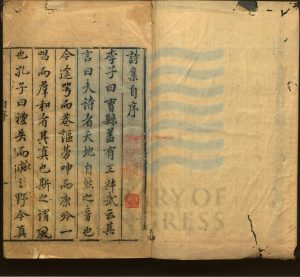 詩集自序
李子曰曹縣蓋有王叔武云其
言曰夫詩者天地自然之音也
今途咢而巷謳勞呻而康吟一
唱而羣和者其真也斯之謂風
也孔子曰禮失而求之野今真
自序
RY OF
NGRESS